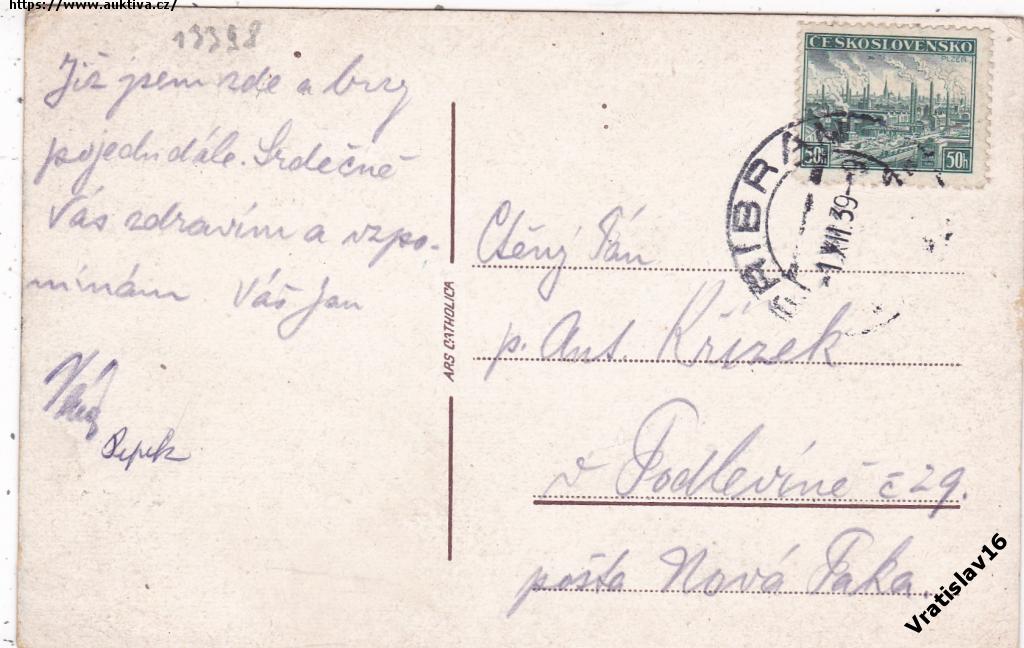 https://www.auktiva.cz/
13398
Již jsem zde a brzy
pojedu dále. Srdečně
Vás zdravím a vzpo-
mínám. Váš Jan
Pepek
ARS CATHOLICA
ČESKOSLOVENSKO
PLZEŇ
50h 50h
PŘIBRAM
1.XII.39
Ctěný Pán
p. Ant. Křížek
v Podlevíně č 29.
pošta Nová Paka.
Vratislav16